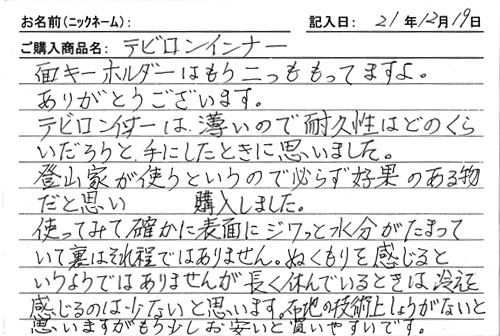 お名前(ニックネーム): 記入日: 21年12月19日
ご購入商品名: テビロンインナー
面キーホルダーはもう二つももってますよ。
ありがとうございます。
テビロンインナーは、薄いので耐久性はどのくら
いだろうと、手にしたときに思いました。
登山家が使うというので必らず好果のある物
だと思い 購入しました。
使ってみて確かに表面にジワっと水分がたまって
いて裏はそれ程ではありません。ぬくもりを感じると
いうようではありませんが長く休んでいるときは、冷えを
感じるのは少ないと思います。布地の技術上しょうがないと
思いますがもう少しお安いと買いやすいです。